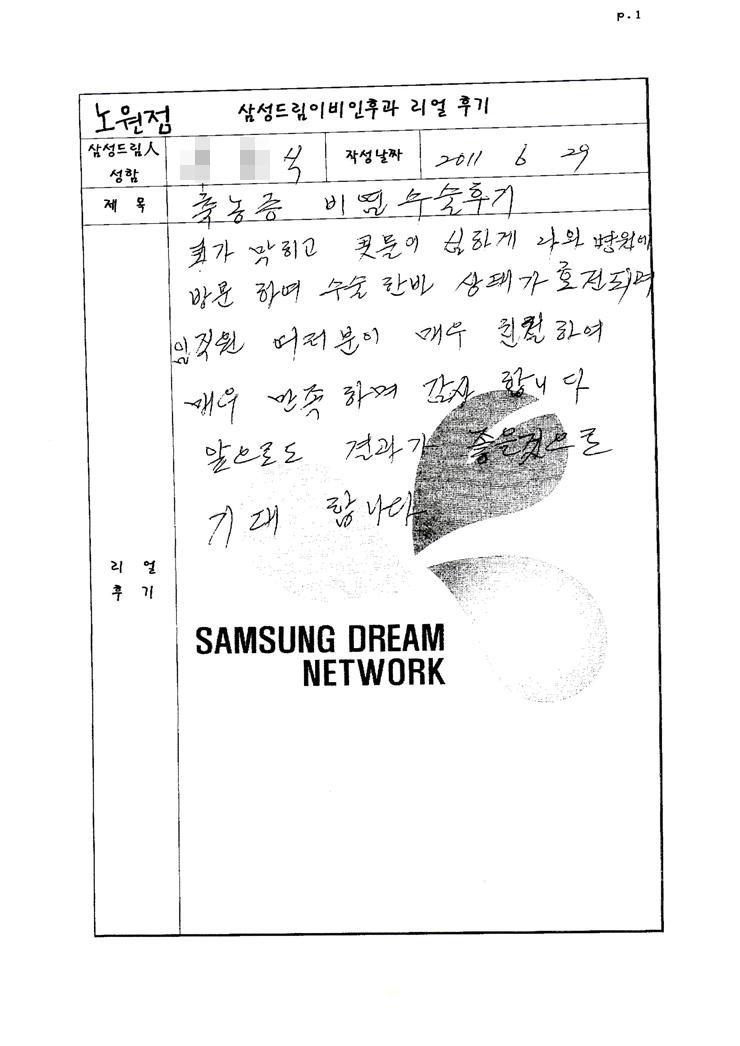 p.1
노원점 삼성드림이비인후과 리얼 후기
삼성드림人 성함 식 작성날짜 2011 6 29
제 목 축농증 비염 수술후기
코가 막히고 콧물이 심하게 나와 병원에
방문 하여 수술 한바 상태가 호전되며
임직원 여러분이 매우 친절하여
매우 만족 하며 감사 합니다
앞으로도 결과가 좋은것으로
기대 합니다
리 얼
후 기
SAMSUNG DREAM
NETWORK